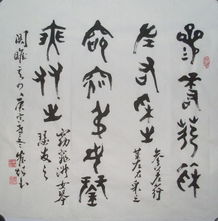 參差荇菜
左右采之
窈窕淑女琴
瑟友之
參差荇
菜左右采之
窈窕淑女琴
瑟友之
關雎
庚寅